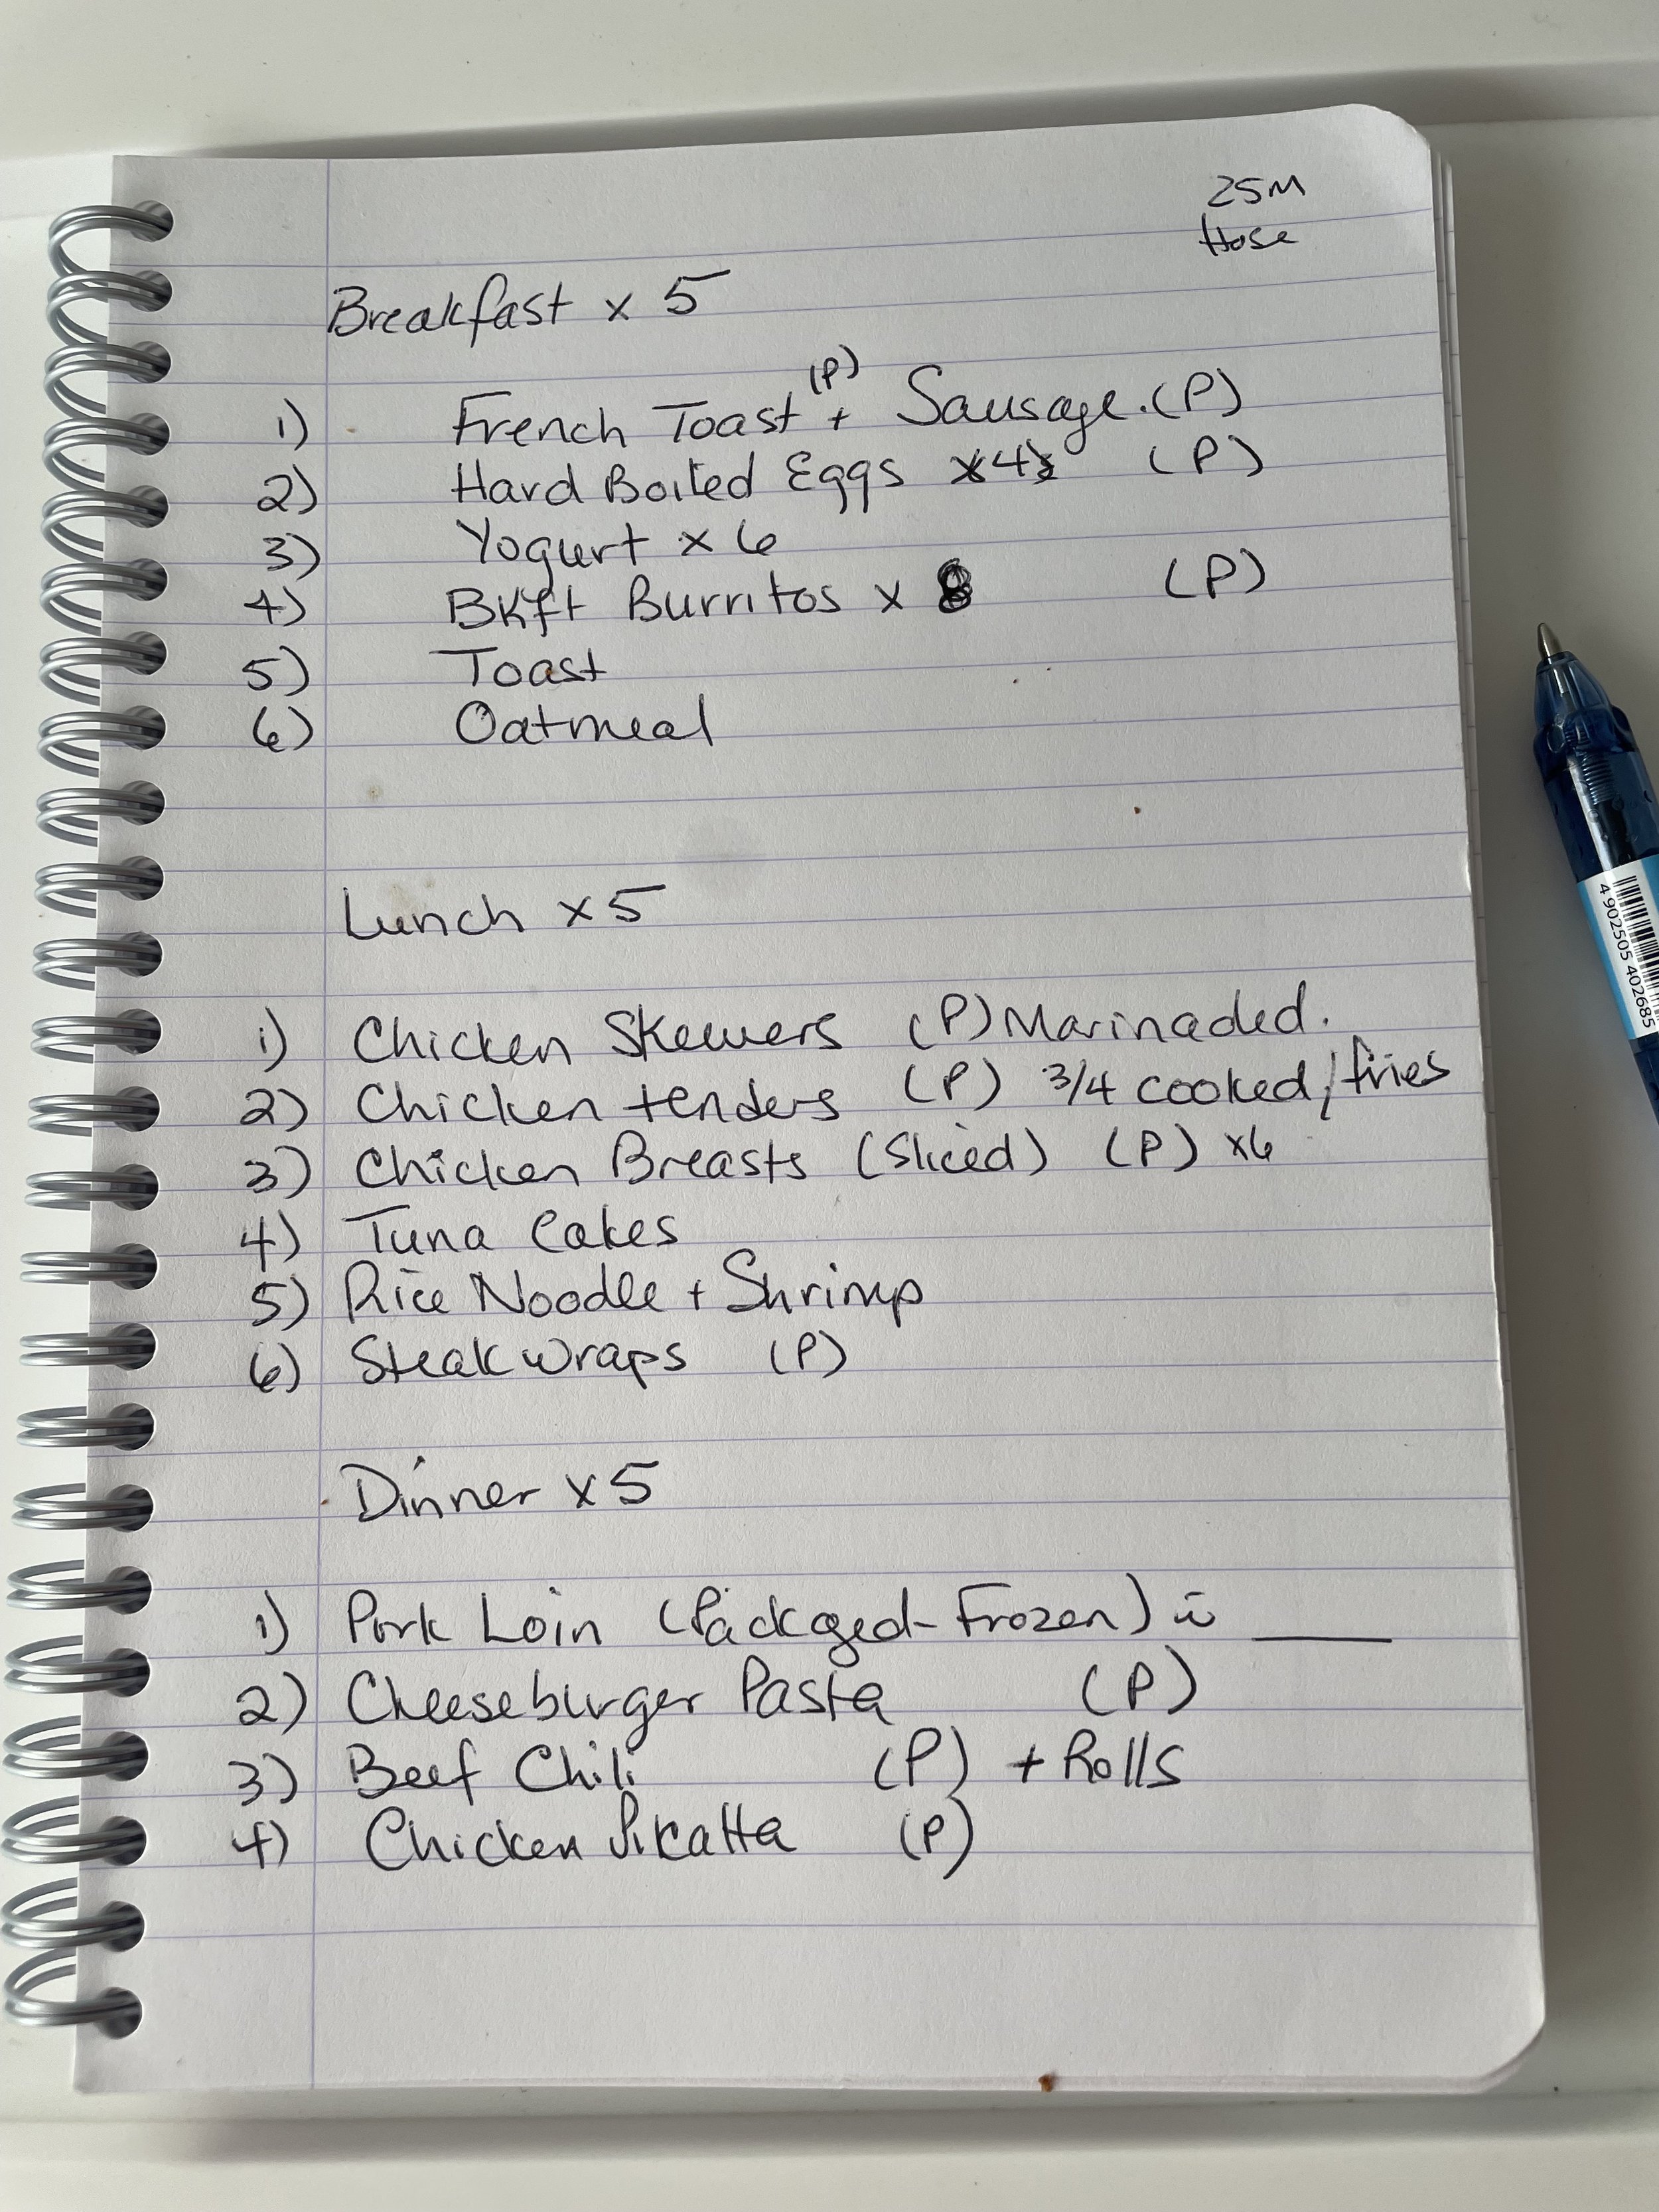 25M
Hose
Breakfast x 5
1) French Toast (P) + Sausage. (P)
2) Hard Boiled Eggs x4 (P)
3) Yogurt x 6
4) Bkft Burritos x 8 (P)
5) Toast
6) Oatmeal
Lunch x 5
1) Chicken Skewers (P) Marinaded.
2) Chicken tenders (P) 3/4 cooked / fries
3) Chicken Breasts (Sliced) (P) x6
4) Tuna Cakes
5) Rice Noodle + Shrimp
6) Steak wraps (P)
Dinner x 5
1) Pork Loin (Packged-Frozen) ____
2) Cheeseburger Pasta (P)
3) Beef Chili (P) + Rolls
4) Chicken Pikatta (P)
4 902505 402685